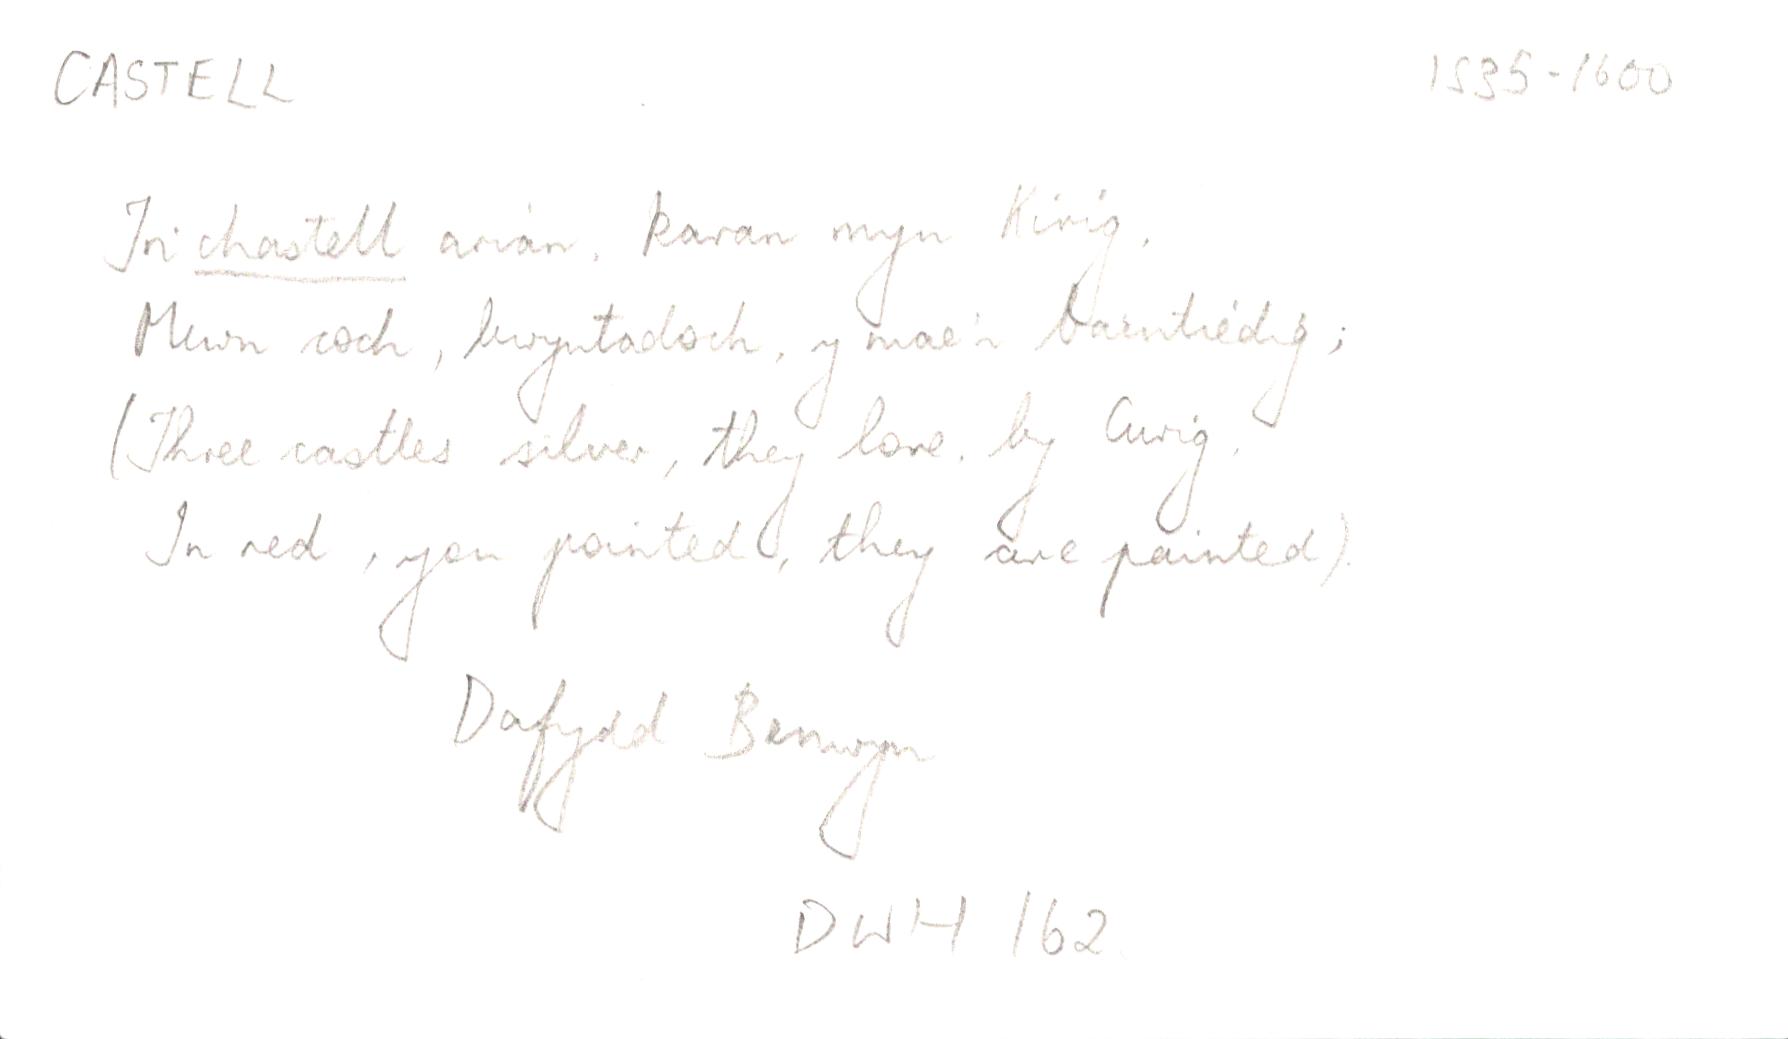 CASTELL 1535-1600
Tri chastell arian, karan myn Kirig,
Mewn coch, bwyntadoch, y mae'n baentiedig;
(Three castles silver, they love, by Curig,
In red, you painted, they are painted).
Dafydd Benwyn
DWH 162